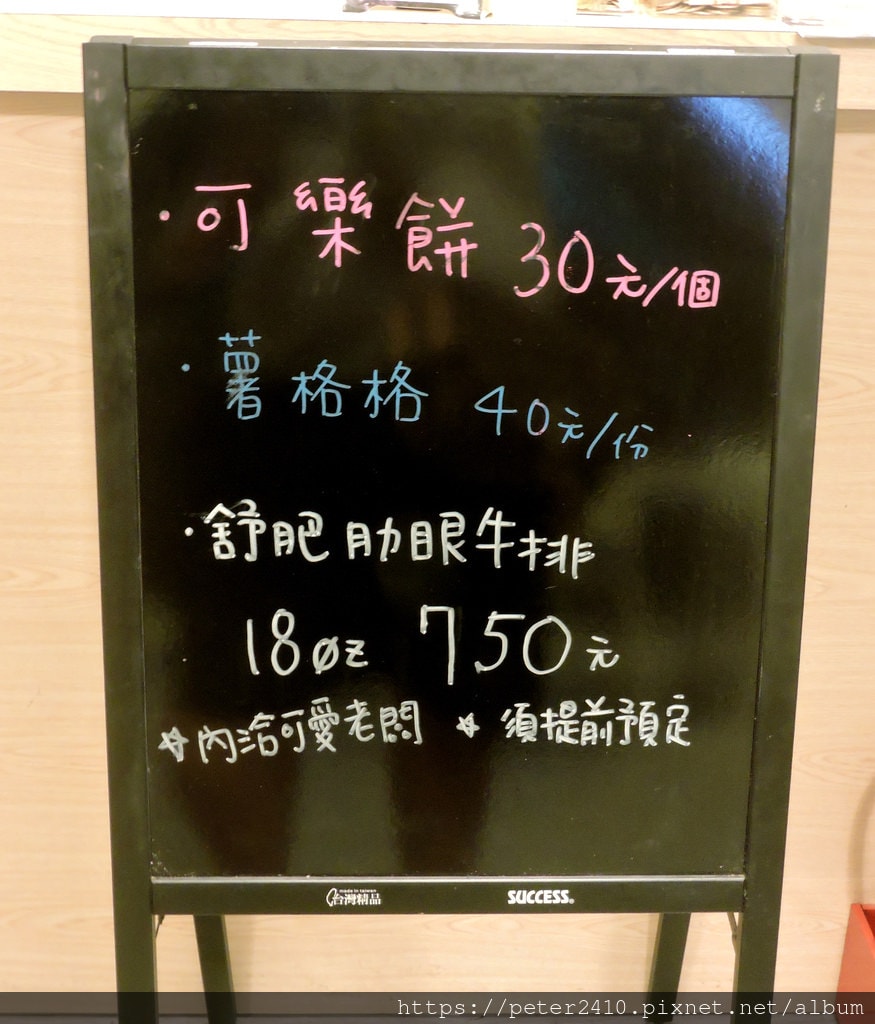 ·可樂餅 30元/個
·薯格格 40元/份
·舒肥肋眼牛排
18oz 750元
☆內洽可愛老闆 ☆須提前預定
made in taiwan
台灣精品 SUCCESS®
https://peter2410.pixnet.net/album